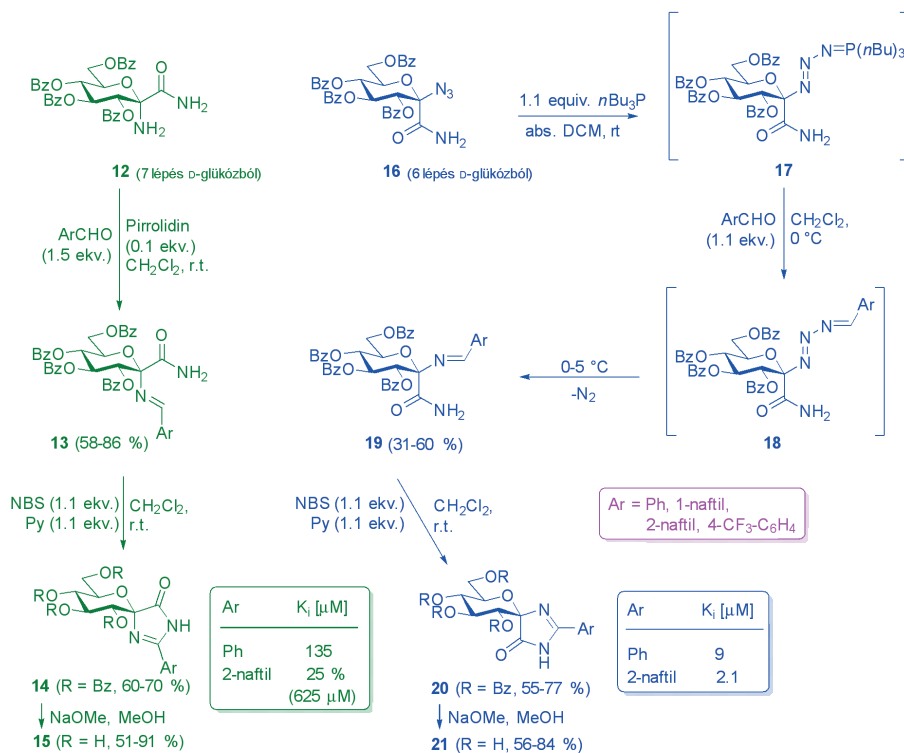 OBz
O
O
BzO
BzO
NH2
BzO
NH2
12 (7 lépés D-glükózból)
OBz
O
BzO
N3
BzO
BzO
O
NH2
16 (6 lépés D-glükózból)
1.1 equiv. nBu3P
abs. DCM, rt
N=P(nBu)3
N
OBz
O
N
BzO
BzO
BzO
O
NH2
17
ArCHO
(1.5 ekv.)
Pirrolidin
(0.1 ekv.)
CH2Cl2, r.t.
ArCHO
(1.1 ekv.)
CH2Cl2,
0 °C
OBz
O
O
BzO
BzO
NH2
BzO
N
Ar
13 (58-86 %)
OBz
Ar
O
BzO
N
BzO
BzO
O
NH2
19 (31-60 %)
0-5 °C
-N2
Ar
N
N
OBz
O
N
BzO
BzO
BzO
O
NH2
18
NBS (1.1 ekv.)
Py (1.1 ekv.)
CH2Cl2,
r.t.
NBS (1.1 ekv.)
Py (1.1 ekv.)
CH2Cl2,
r.t.
Ar = Ph, 1-naftil,
2-naftil, 4-CF3-C6H4
OR
O
O
RO
RO
RO
NH
N
Ar
14 (R = Bz, 60-70 %)
NaOMe, MeOH
15 (R = H, 51-91 %)
Ar Ki [µM]
Ph 135
2-naftil 25 %
(625 µM)
OR
O
N
RO
RO
RO
Ar
O
N
H
20 (R = Bz, 55-77 %)
NaOMe, MeOH
21 (R = H, 56-84 %)
Ar Ki [µM]
Ph 9
2-naftil 2.1